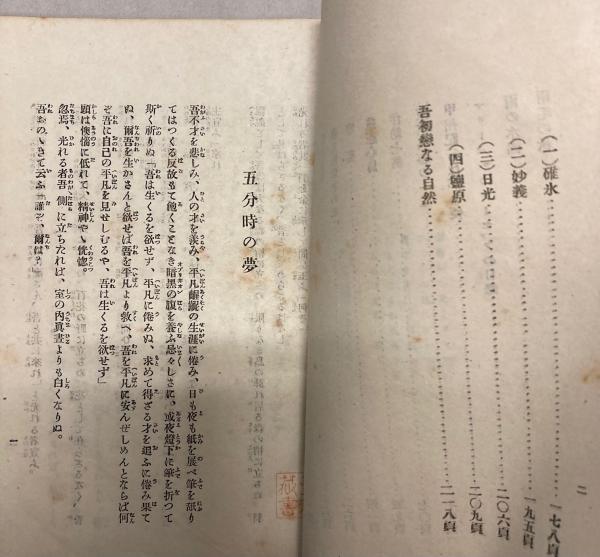 二
(一)碓氷……………一七八頁
(二)妙義……………一九五頁
(三)日光……………二〇六頁
(四)鹽原……………二〇九頁
吾初戀なる自然……………二一八頁
五分時の夢
吾不才を悲しみ、人の才を羨み、平凡齷齪の生涯に倦み、日も夜も紙を展べ筆を舐り
てはつくる反故もて飽くことなき暗黑の腹を養ふ忌々しさに、或夜燈下に筆を折つて
斯く祈りぬ「吾は生くるを欲せず、平凡に倦みぬ、求めて得ざる才を追ふに倦み果て
ぬ、爾吾を生かさんと欲せば吾を平凡より救へ、吾を平凡に安んぜしめんとならば何
ぞ吾に自己の平凡を見せしむるや、吾は生くるを欲せず」
頭は懊惱に低れて、精神や丶恍惚。
忽焉、光れる者吾側に立ちたれば、室の内眞晝よりも白くなりぬ。
吾をのゝきて云ふ「誰ぞ、爾は?」
一